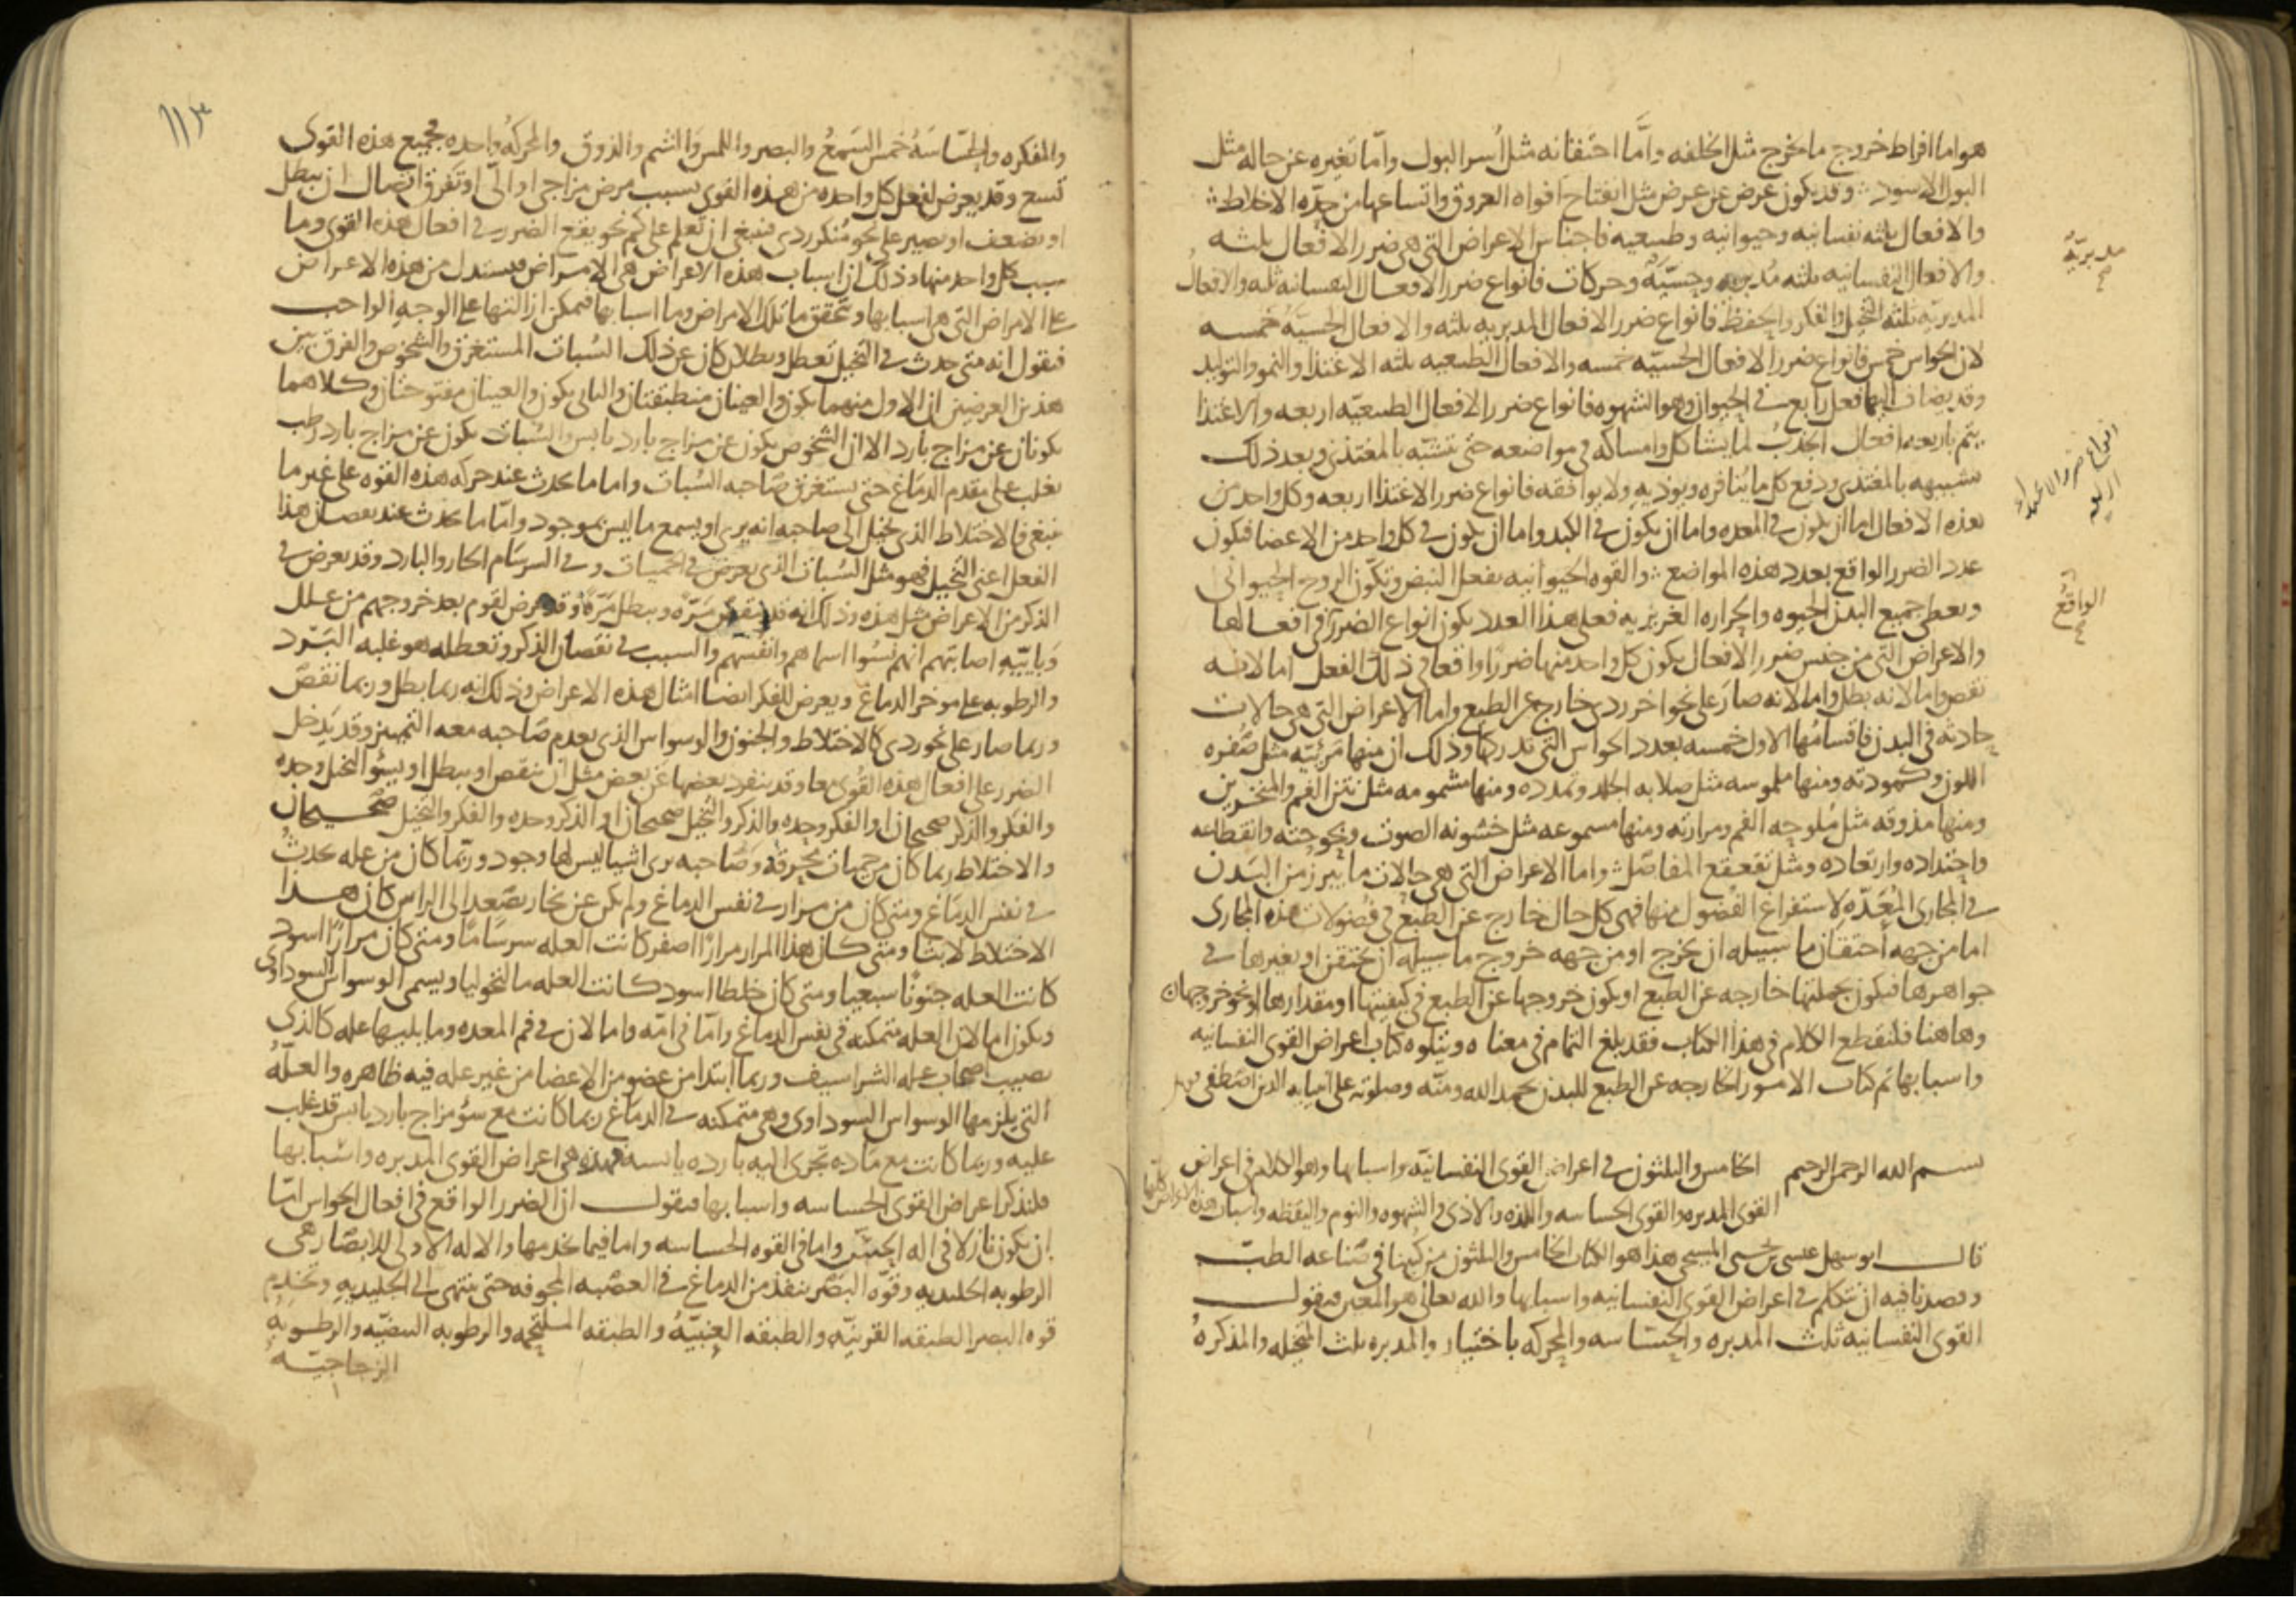 هو اما افراط خروج ما يخرج مثل الخلفه واما احتقانه مثل أسر البول واما تغيره عن حاله مثل
البول الاسود وقد يكون عرض عن عرض مثل انفتاح افواه العروق واتساعها من حدّه الاخلاط
والافعال ثلثه نفسانيه وحيوانيه وطبيعيه فاجناس الاعراض التي هي ضرر الافعال ثلثه
والافعال النفسانيه ثلثه مدبريه وحسّيه وحركات فانواع ضرر الافعال النفسانيه ثلثه والافعال
المدبريه ثلثه التخيل والفكر والحفظ فانواع ضرر الافعال المدبريه ثلثه والافعال الحسيّه خمسه
لان الحواس خمس فانواع ضرر الافعال الحسيّه خمسه والافعال الطبيعيه ثلثه الاغتذا والنمو والتوليد
وقد يضاف اليها فعل رابع في الحيوان وهو الشهوه فانواع ضرر الافعال الطبيعيّه اربعه والاغتذا
يتم باربعه افعال الجذب لما يشاكل وامساكه في مواضعه حتى يتشبّه بالمغتذي وبعد ذلك
تشبيهه بالمغتذي ودفع كل ما ينافره ويوذيه ولا يوافقه فانواع ضرر الاغتذا اربعه وكل واحد من
هذه الافعال اما ان يكون في المعده واما ان يكون في الكبد واما ان يكون في كل واحد من الاعضا فيكون
عدد الضرر الواقع بعدد هذه المواضع والقوه الحيوانيه تفعل النبض وتكوّن الروح الحيواني
وتعطي جميع البدن الحيوه والحراره الغريزيه فعلى هذا العدد يكون انواع الضرر في افعالها
والاعراض التي من جنس ضرر الافعال يكون كل واحد منها ضررا واقعا في ذلك الفعل اما لانه
نقص واما لانه بطل واما لانه صار على نحو اخر ردي خارج عن الطبع واما الاعراض التي هي حالات
حادثه في البدن فاقسامها الاول خمسه بعدد الحواس التي تدركها وذلك ان منها مرئيّه مثل صُفره
اللون وكمودته ومنها ملموسه مثل صلابه الجلد وتمدده ومنها مشمومه مثل نتن الفم والمنخرين
ومنها مذوقه مثل مُلوحه الفم ومرارته ومنها مسموعه مثل خشونه الصوت وبحوحته وانقطاعه
واحتداده وارتعاده ومثل تقعقع المفاصل واما الاعراض التي هي حالات ما يبرز من البدن
في المجاري المُعَدّه لاستفراغ الفضول منها فهي كل حال خارج عن الطبع في فضولات هذه المجاري
اما من جهه احتقان ما سبيله ان يخرج او من جهه خروج ما سبيله ان يحتقن او تغيرها في
جواهرها فيكون بجملتها خارجه عن الطبع او يكون خروجها عن الطبع في كيفيتها او مقدارها او نحو خروجها
وهاهنا فلنقطع الكلام في هذا الكتاب فقد بلغ التمام في معناه ويتلوه كتاب اعراض القوى النفسانيه
واسبابها تم كتاب الامور الخارجه عن الطبع للبدن بحمد الله ومنّه وصلوته على انبيايه الذين اصطفى
بسم الله الرحمن الرحيم الخامس والثلثون في اعراض القوى النفسانيّه واسبابها وهو الكلام في اعراض
القوى المدبره والقوى الحساسه واللذه والاذى والشهوه والنوم واليقظه واسباب هذه الاعراض كلها
قال ابو سهل عيسى بن يحيى المسيحي هذا هو الكتاب الخامس والثلثون من كتبنا في صناعه الطبّ
وقصدنا فيه ان نتكلم في اعراض القوى النفسانيه واسبابها والله تعالى هو المعين فنقول
القوى النفسانيه ثلث المدبره والحسّاسه والمحركه باختيار والمدبره ثلث المتخيله والمذكرهُ
مدبريّه
انواع ضرر الاغتذاء
اربعه
الواقع
١١٣
والمفكره والحسّاسَهُ خمس السَمعُ والبصر واللمس والشم والذوق والمحركهُ واحده فجميع هذه القوى
تسع وقد يعرض لفعل كل واحده من هذه القوى بسبب مرض مزاجي او الي او تفرق اتصال ان يبطل
او يضعف او يصير على نحو مُنكر ردي فينبغي ان تعلم على كم نحو يقع الضرر في افعال هذه القوى وما
سبب كل واحد منها وذلك ان اسباب هذه الاعراض هي الامراض فيستدل من هذه الاعراض
على الامراض التي هي اسبابها وتحقق ما تلك الامراض وما اسبابها فيمكن ازالتها على الوجه الواجب
فنقول انه متى حدث في التخيل تعطل وبطلان كان عن ذلك السُبات المستغرق والشخوص والفرق بين
هذين العرضين ان الاول منهما يكون والعينان منطبقتان والثاني يكون والعينان مفتوحتان وكلاهما
يكونان عن مزاج بارد الا ان الشخوص يكون عن مزاج بارد يابس والسُبات يكون عن مزاج بارد رطب
يغلب على مقدم الدماغ حتى يستغرق صاحبه السُبات واما ما يحدث عند حركه هذه القوه على غير ما
ينبغي فالاختلاط الذي يخيل الى صاحبه انه يرى او يسمع ما ليس بموجود وامّا ما يحدث عند نقصان هذا
الفعل اعني التخيل فهو مثل السُبات الذي يعرض في الحميات وفي السرسام الحار والبارد وقد يعرض في
الذكر من الاعراض مثل هذه وذلك انه قد ينقص مَرّه ويبطل مَرّه وقد عرض لقوم بعد خروجهم من علل
وبايّيهِ اصابتهم انهم نسُوا اسماهم وانفسهم والسبب في نقصان الذكر وتعطله هو غلبه البَرد
والرطوبه على موخر الدماغ ويعرض للفكر ايضا امثال هذه الاعراض وذلك انه ربما بطل وربما نقصَ
وربما صار على نحو ردي كالاختلاط والجنون والوسواس الذي يعدم صاحبه معه التمييز وقد يدخل
الضرر على افعال هذه القُوى معا وقد ينفرد بعضها عن بعض مثل ان ينقص او يبطل او يسُو التخيل وحده
والفكر والذكر صحيحان او الفكر وحده والذكر والتخيل صحيحان او الذكر وحده والفكر والتخيل صحيحان
والاختلاط ربما كان من حميات محرقه وصَاحبه يرى اشيا ليس لها وجود وربّما كان من عله تحدثُ
في نفس الدماغ ومتى كان من مرار في نفس الدماغ ولم يكن عن بخار يصّعد الى الراس كان هذا
الاختلاط لابثا ومتى كان هذا المرار مرارًا اصفر كانت العله سرسامًا ومتى كان مرارًا اسود
كانت العله جنونًا سبعيا ومتى كان خلطا اسود كانت العله مالنخوليا ويسمى الوسواس السوداوي
ويكون اما لان العله متمكنه في نفس الدماغ وامّا في امّه واما لان في فم المعده وما يليها عله كالذي
تصيب اصحاب عله الشراسيف وربما ابتدا من عضو من الاعضا من غير عله فيه ظاهره والعلّهُ
التي يلزمها الوسواس السوداوي وهي متمكنه في الدماغ ربما كانت مع سوُ مزاج بارد يابس قد غلب
عليه وربما كانت مع مَاده تجري اليه بارده يابسه فهذه هي اعراض القوى المدبره واسبابها
فلنذكر اعراض القوى الحساسه واسبابها فنقول ان الضرر الواقع في افعال الحواس امّا
ان يكون نازلا في اله الحِسّ واما في القوه الحساسه واما فيما يخدمها والاله الاولى للابصَار هي
الرطوبه الجليديه وقوّه البَصَر ينفذ من الدماغ في العصَبه المجوفه حتى ينتهي الى الجليديه وتخدم
قوه البصر الطبقه القرنيّه والطبقه العِنبيّهُ والطبقه الملتحِمه والرطوبه البيضيّه والرطوبه
الزجاجيّه